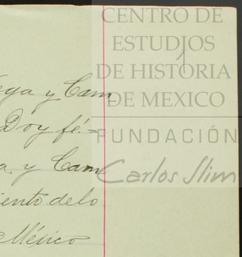 CENTRO DE
ESTUDIOS
DE HISTORIA
DE MEXICO
FUNDACIÓN
Carlos Slim
y Cam
Doy fé=
y Cam
iento delo
México